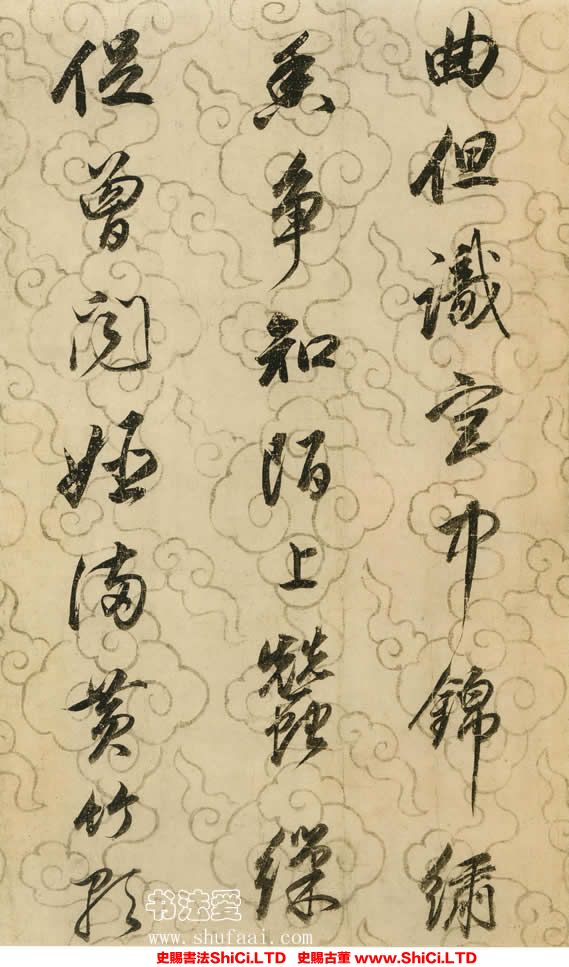 曲但識室中錦繡
香争知陌上蠶繰
促曾閲姬滿黄竹歌
书法爱
www.shufaai.com
史賜書法ShiCi.LTD 史賜古董 www.ShiCi.LTD